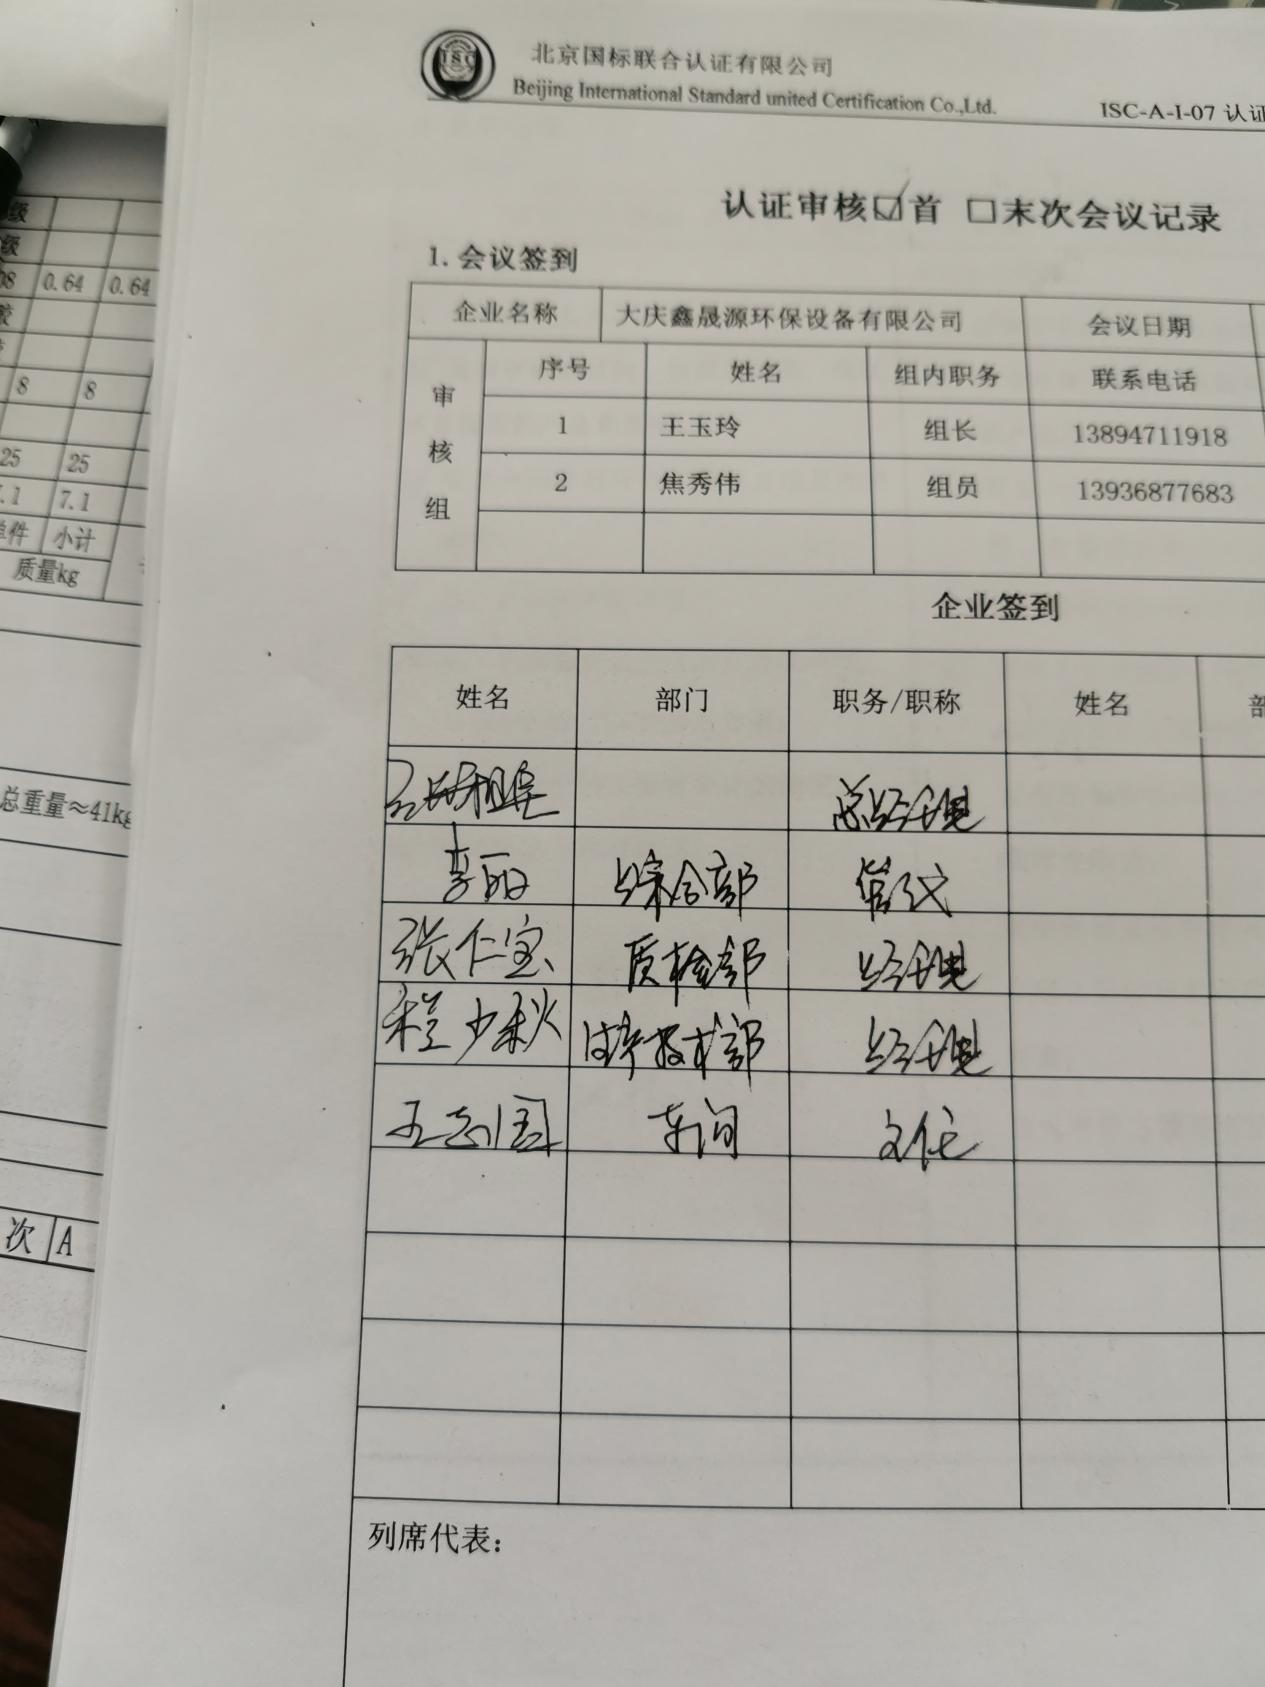 北京国标联合认证有限公司
Beijing International Standard united Certification Co.,Ltd.
ISC-A-I-07 认证
认证审核☑首 □末次会议记录
1.会议签到
企业名称 大庆鑫晟源环保设备有限公司 会议日期
审核组 序号 姓名 组内职务 联系电话
1 王玉玲 组长 13894711918
2 焦秀伟 组员 13936877683
企业签到
姓名 部门 职务/职称 姓名
总经理
李丽 综合部 管代
张仁宝 质检部 经理
程少秋 技术部 经理
王志国 车间 主任
列席代表：
级
级
0.64 0.64
8 8
25 25
7.1
单件 小计
质量kg
总重量≈41kg
次 A